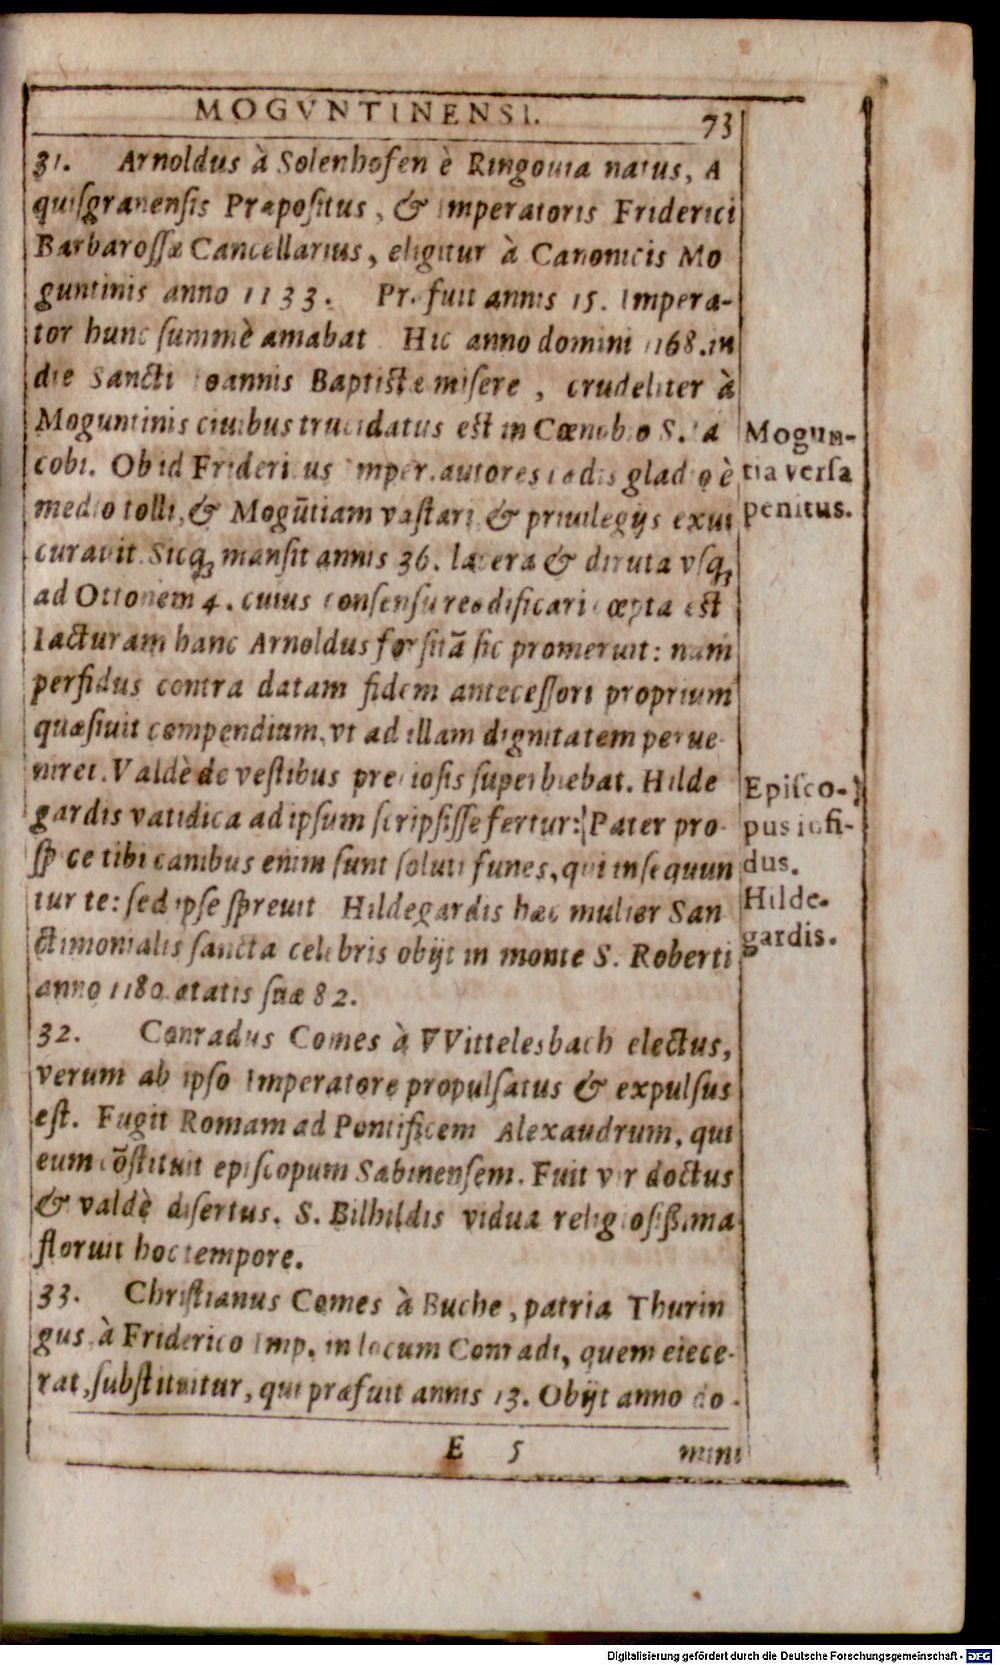 MOGVNTINENSI. 73
31. Arnoldus à Solenhofen è Ringouia natus, A
quisgranensis Præpositus, & Imperatoris Friderici
Barbarossæ Cancellarius, eligitur à Canonicis Mo
guntinis anno 1133. Præfuit annis 15. Impera-
tor hunc summè amabat Hic anno domini 1168. in
die Sancti Ioannis Baptistæ misere, crudeliter à
Moguntinis ciuibus trucidatus est in Cœnobio S. Ia
cobi. Ob id Fridericus Imper. autores cædis gladio è
medio tolli, & Mogũtiam vastari & priuilegijs exui
curavit. Sicq; mansit annis 36. lacera & diruta vsq;
ad Ottonem 4. cuius consensu reædificari cœpta est
Iacturam hanc Arnoldus forsitã sic promeruit: nam
perfidus contra datam fidem antecessori proprium
quæsiuit compendium, vt ad illam dignitatem perue-
niret. Valdè de vestibus preciosis superbiebat. Hilde
gardis vatidica ad ipsum scripsisse fertur: Pater pro-
spice tibi canibus enim sunt soluti funes, qui insequun
tur te: sed ipse spreuit Hildegardis hæc mulier San
ctimonialis sancta celebris obijt in monte S. Roberti
anno 1180. ætatis suæ 82.
32. Conradus Comes à VVittelesbach electus,
verum ab ipso Imperatore propulsatus & expulsus
est. Fugit Romam ad Pontificem Alexandrum, qui
eum cõstituit episcopum Sabinensem. Fuit vir doctus
& valdè disertus. S. Bilhildis vidua religiosißima
floruit hoc tempore.
33. Christianus Comes à Buche, patria Thurin
gus, à Friderico Imp. in locum Conradi, quem eiece-
rat, substituitur, qui præfuit annis 13. Obijt anno do-
E 5 mini
Mogun-
tia versa
penitus.
Episco-
pus infi-
dus.
Hilde-
gardis.
Digitalisierung gefördert durch die Deutsche Forschungsgemeinschaft - DFG